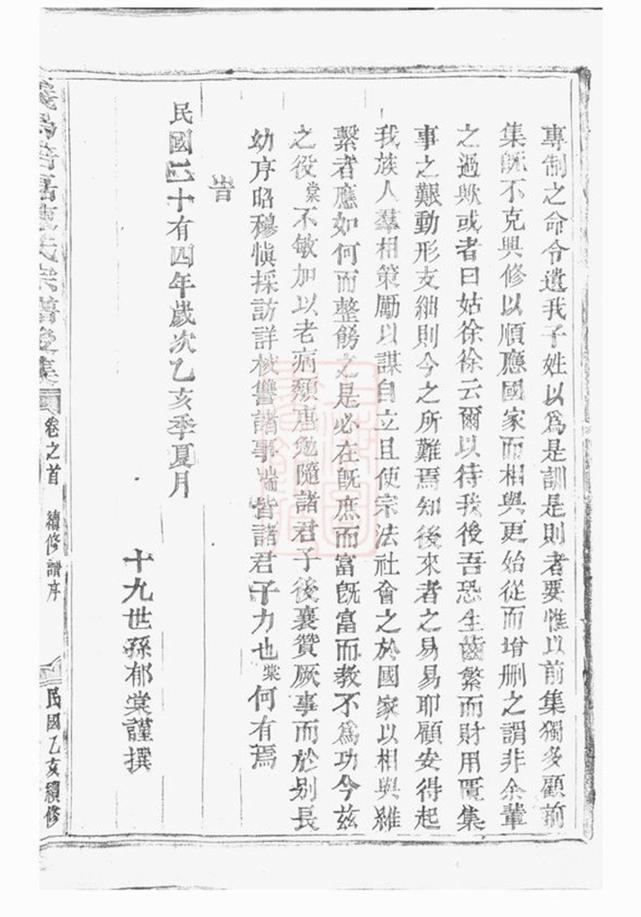 專制之命令遺我子姓以為是訓是則者要惟以前集獨多顧前
集既不克興修以順應國家而相與更始從而增刪之謂非余輩
之過歟或者曰姑徐徐云爾以待我後吾恐生齒繁而財用匱集
事之艱動形支絀則今之所難焉知後來者之易易耶顧安得起
我族人羣相策勵以謀自立且使宗法社會之於國家以相與維
繫者應如何而整飭之是必在既庶而富既富而教不為功今茲
之役棠不敏加以老病頹唐勉隨諸君子後襄贊厥事而於別長
幼序昭穆慎採訪詳核讐諸事端皆諸君子力也棠何有焉
旹
民國二十有四年歲次乙亥季夏月
十九世孫郁棠謹撰
氏宗譜後集
卷之首
續修譜序
民國乙亥續修